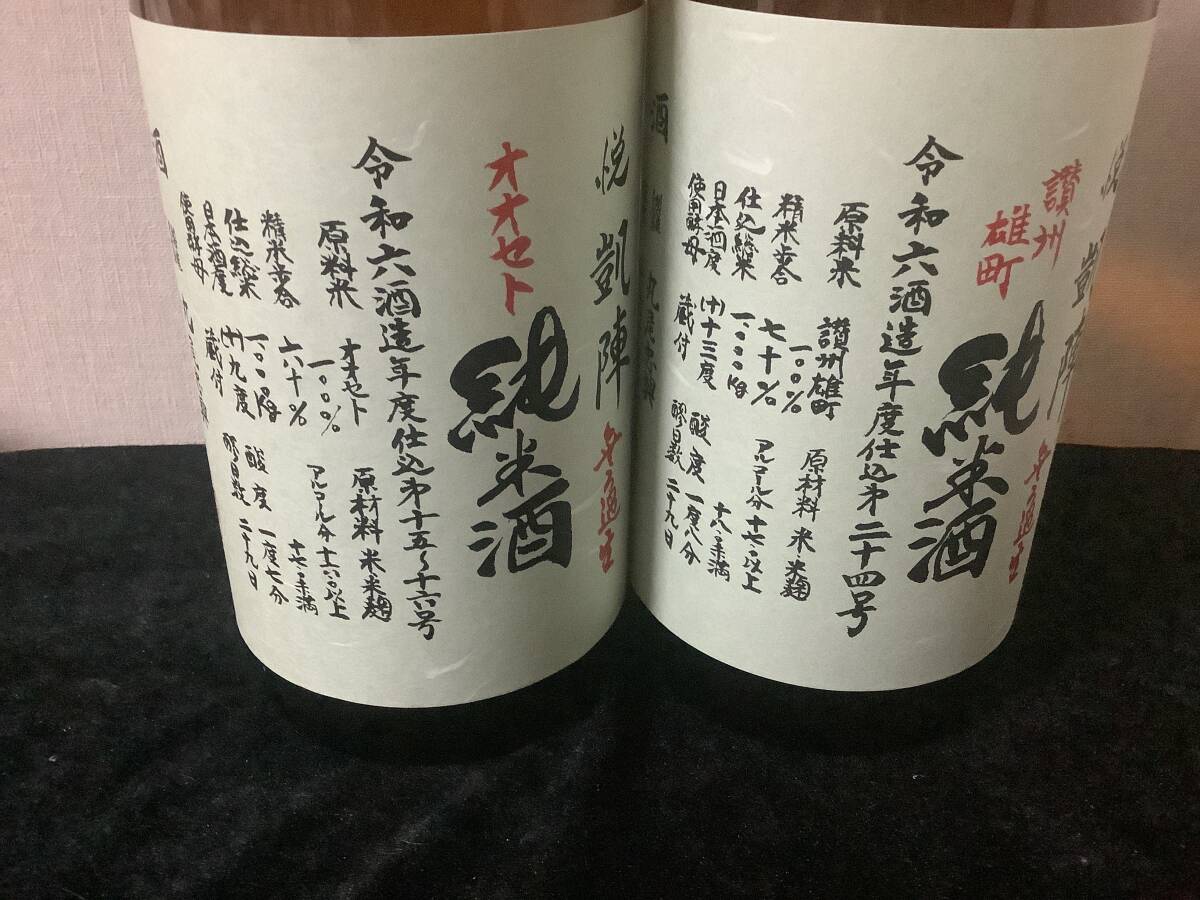 悦凱陣
無ろ過生
オオセト
純米酒
令和六酒造年度仕込第十五〜十六号
原料米 オオセト 一〇〇%
原材料 米 米麹
精米歩合 六十%
アルコール分 十六・〇以上 十七・〇未満
仕込総米 一、〇〇〇kg
日本酒度 (+)九度
酸度 一度七分
使用酵母 蔵付
醪日数 二十九日
酒
悦凱陣
無ろ過生
讃州雄町
純米酒
令和六酒造年度仕込第二十四号
原料米 讃州雄町 一〇〇%
原材料 米 米麹
精米歩合 七十%
アルコール分 十七・〇以上 十八・〇未満
仕込総米 一、〇〇〇kg
日本酒度 (+)十三度
酸度 一度八分
使用酵母 蔵付
醪日数 二十九日
酒